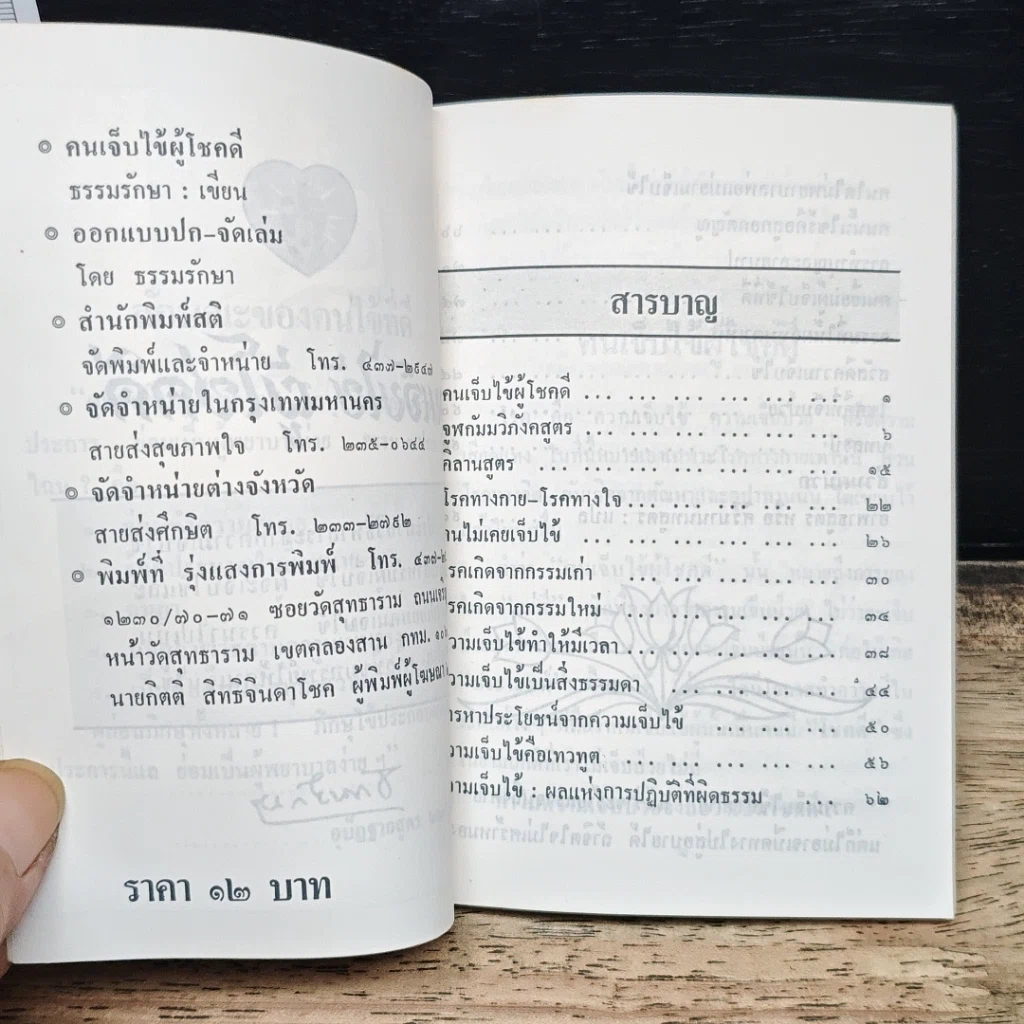 ๏ คนเจ็บไข้ผู้โชคดี
ธรรมรักษา : เขียน
๏ ออกแบบปก-จัดเล่ม
โดย ธรรมรักษา
๏ สำนักพิมพ์สติ
จัดพิมพ์และจำหน่าย โทร. ๔๓๗-๒๙๔๗
๏ จัดจำหน่ายในกรุงเทพมหานคร
สายส่งสุขภาพใจ โทร. ๒๓๕-๐๖๔๔
๏ จัดจำหน่ายต่างจังหวัด
สายส่งศึกษิต โทร. ๒๓๓-๒๗๙๒
๏ พิมพ์ที่ รุ่งแสงการพิมพ์ โทร. ๔๓๗-
๑๒๓๐/๗๐-๗๑ ซอยวัดสุทธาราม
หน้าวัดสุทธาราม เขตคลองสาน กทม.
นายกิตติ สิทธิจินดาโชค ผู้พิมพ์ผู้โฆษณา
ราคา ๑๒ บาท
สารบาญ
คนเจ็บไข้ผู้โชคดี ... ... ... ... ... ๑
จูฬกัมมวิภังคสูตร ... ... ... ... ... ๖
คิลานสูตร ... ... ... ... ... ... ๑๕
โรคทางกาย-โรคทางใจ ... ... ... ... ๒๒
านไม่เคยเจ็บไข้ ... ... ... ... ... ๒๖
รคเกิดจากกรรมเก่า ... ... ... ... ๓๐
รคเกิดจากกรรมใหม่ ... ... ... ... ๓๔
วามเจ็บไข้ทำให้มีเวลา ... ... ... ... ๓๘
วามเจ็บไข้เป็นสิ่งธรรมดา ... ... ... ... ๔๔
ารหาประโยชน์จากความเจ็บไข้ ... ... ... ๕๐
วามเจ็บไข้คือเทวทูต ... ... ... ... ๕๖
วามเจ็บไข้ : ผลแห่งการปฏิบัติที่ผิดธรรม ... ๖๒